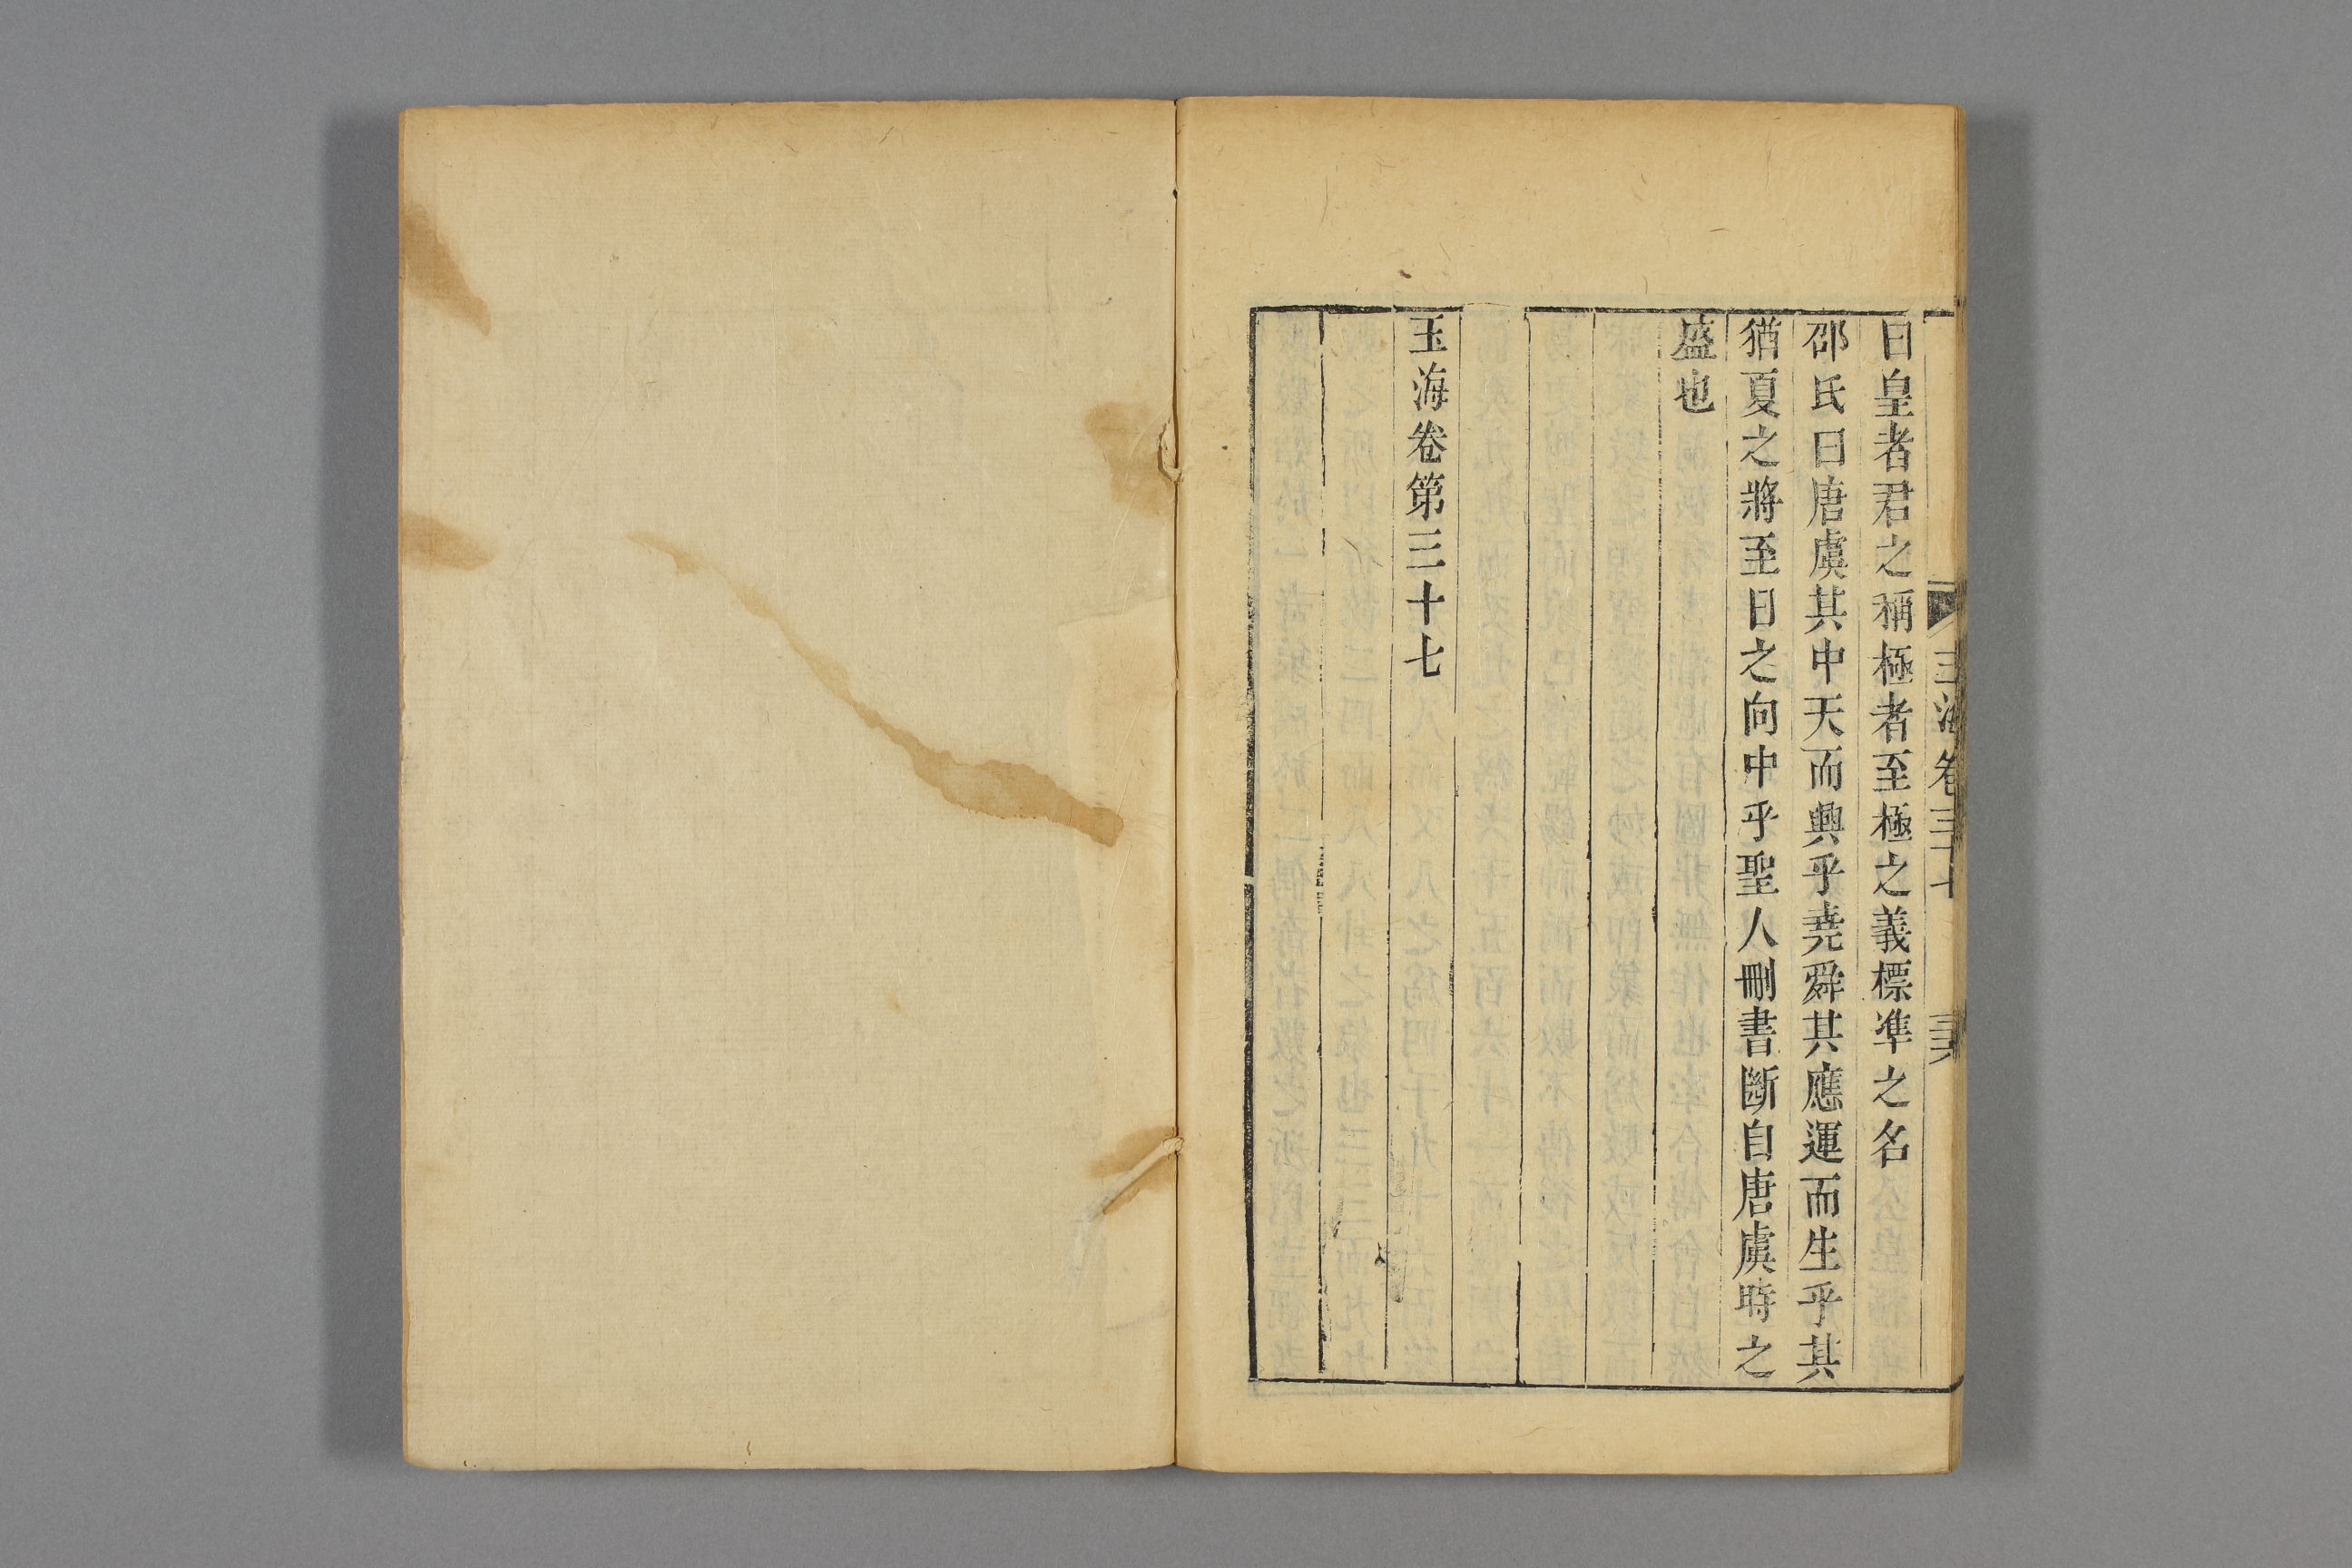 曰皇者君之稱極者至極之義標準之名
邵氏曰唐虞其中天而興乎堯舜其應運而生乎其
猶夏之將至日之向中乎聖人刪書斷自唐虞時之
盛也
玉海卷第三十七
玉海卷三十七